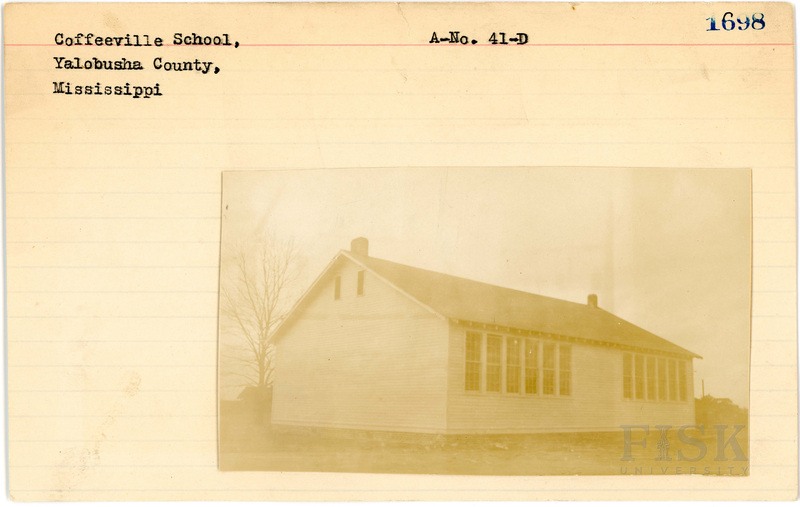 1698
Coffeeville School, A-No. 41-D
Yalobusha County,
Mississippi
FISK
UNIVERSITY